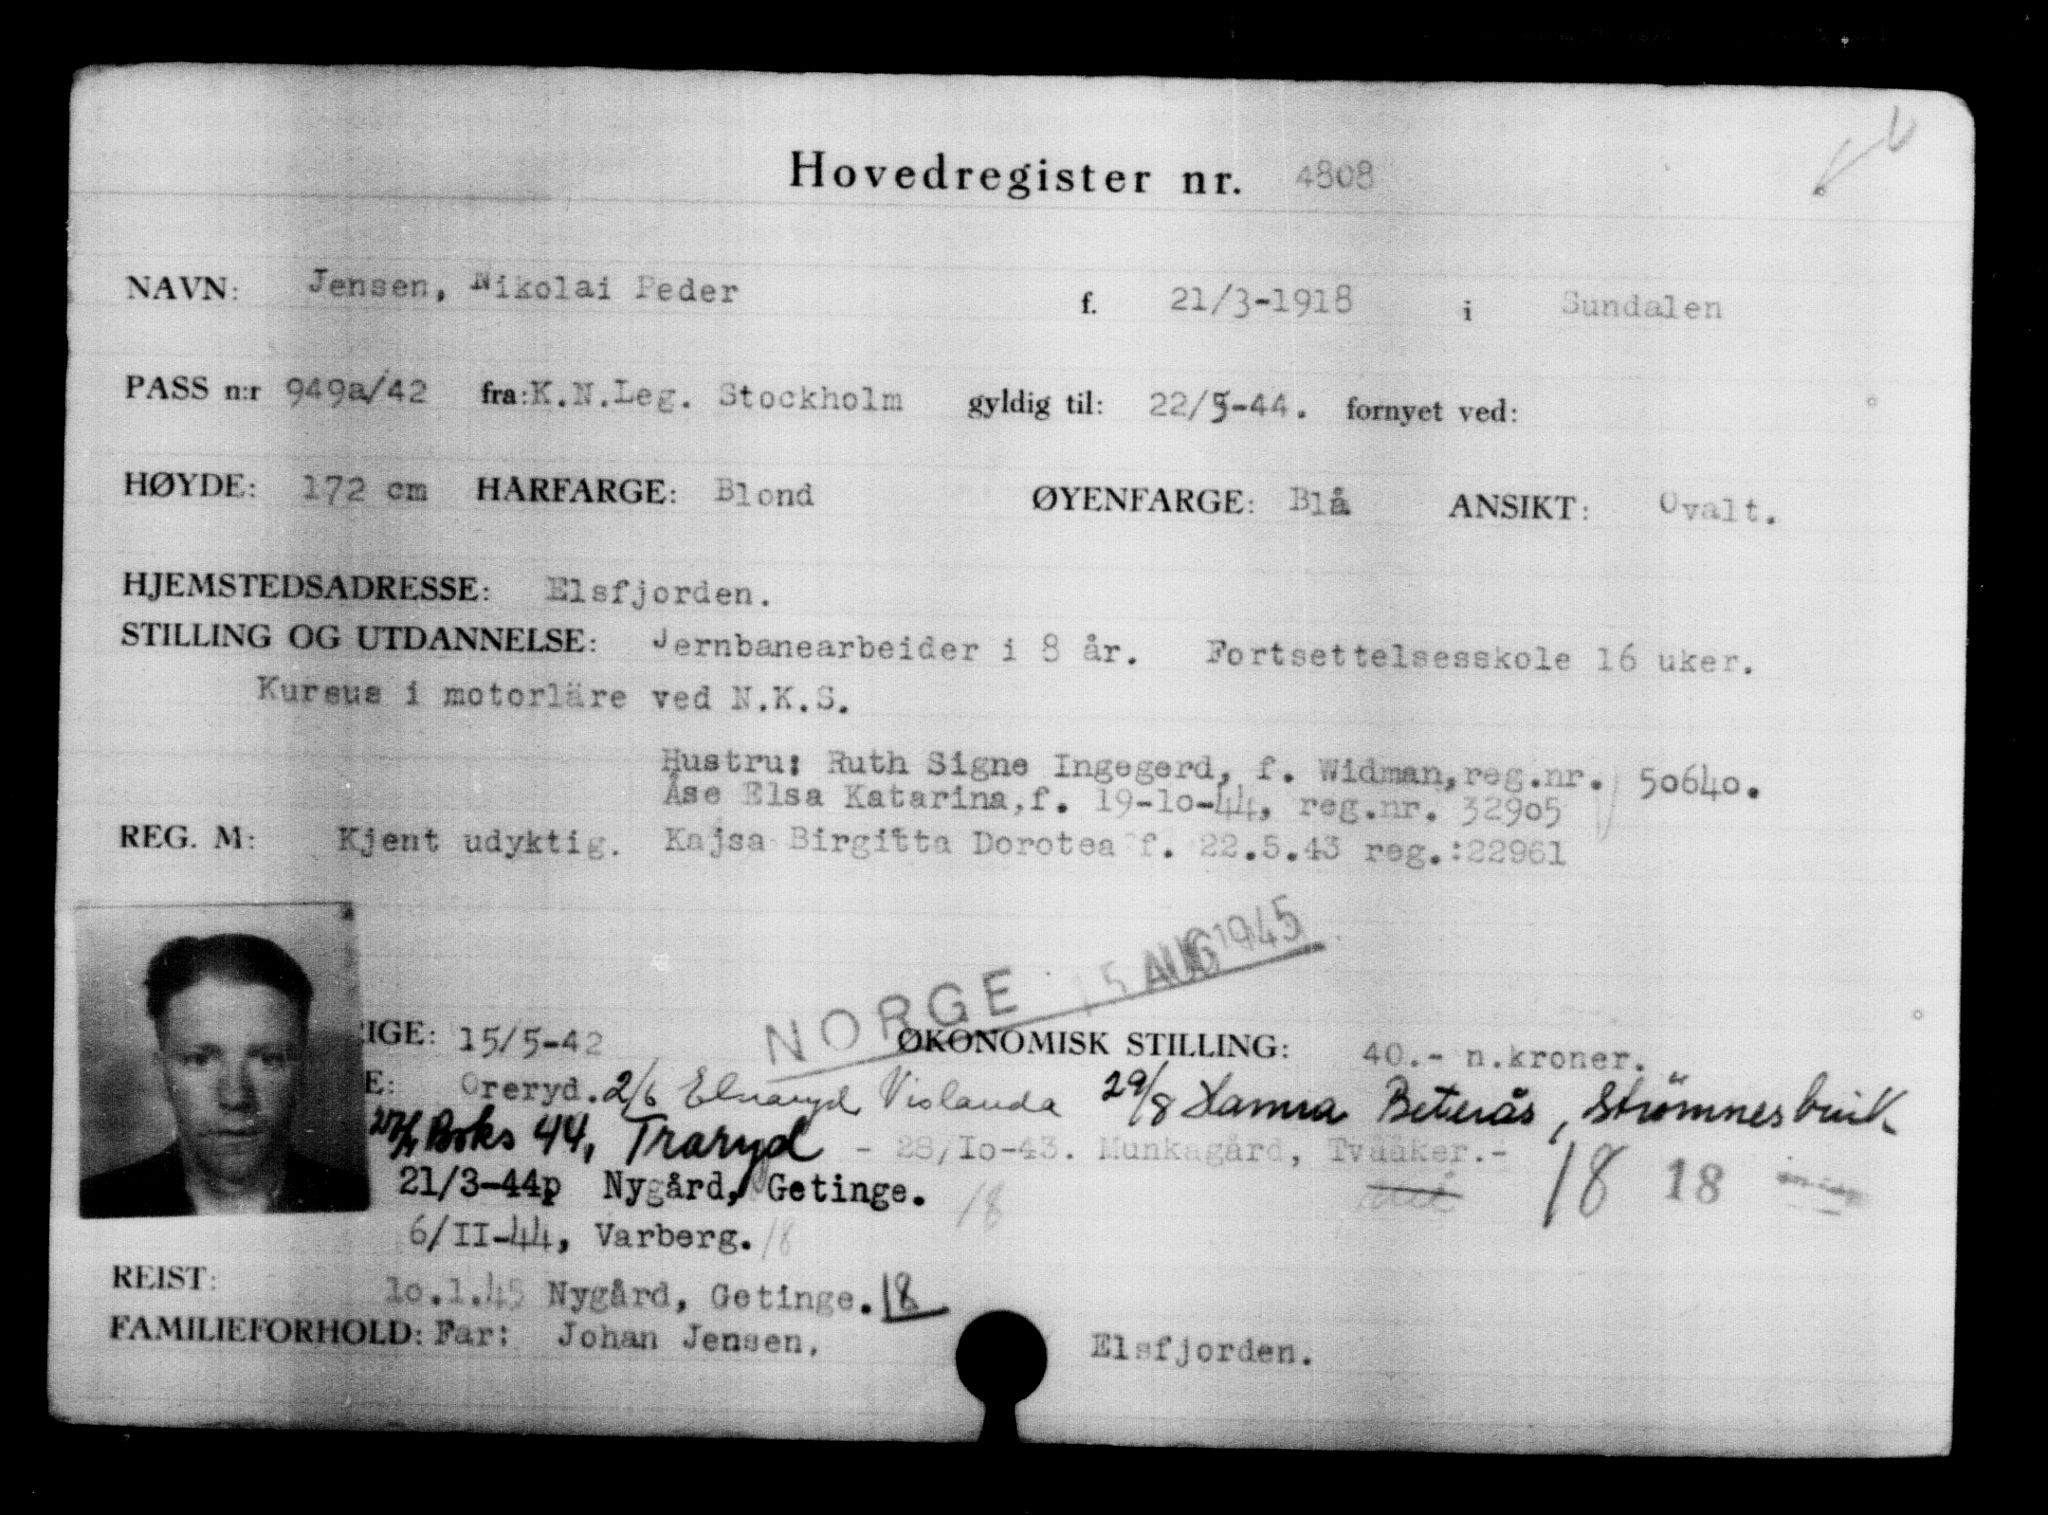 Hovedregister nr. 4808
NAVN: Jensen, Nikolai Peder f. 21/3-1918 i Sundalen
PASS n:r 949a/42 fra: K.N.Leg. Stockholm gyldig til: 22/5-44. fornyet ved:
HØYDE: 172 cm HARFARGE: Blond ØYENFARGE: Blå ANSIKT: Ovalt.
HJEMSTEDSADRESSE: Elsfjorden.
STILLING OG UTDANNELSE: Jernbanearbeider i 8 år. Fortsettelsesskole 16 uker.
Kursus i motorläre ved N.K.S.
Hustru: Ruth Signe Ingegerd, f. Widman, reg.nr. 50640.
Åse Elsa Katarina, f. 19-10-44, reg.nr. 32905
REG. M: Kjent udyktig. Kajsa Birgitta Dorotea f. 22.5.43 reg.:22961
NORGE 15 AUG 1945
RIGE: 15/5-42 ØKONOMISK STILLING: 40.- n.kroner.
E: Oreryd. 2/6 Elnaryd Vislanda 29/8 Hamra Beterås, Strømnesbruk
Boks 44, Traryd - 28/10-43. Munkagård, Tvååker.-
21/3-44p Nygård, Getinge. 18 18 18
6/II-44, Varberg. 18
REIST: 10.1.45 Nygård, Getinge. 18
FAMILIEFORHOLD: Far: Johan Jensen. Elsfjorden.